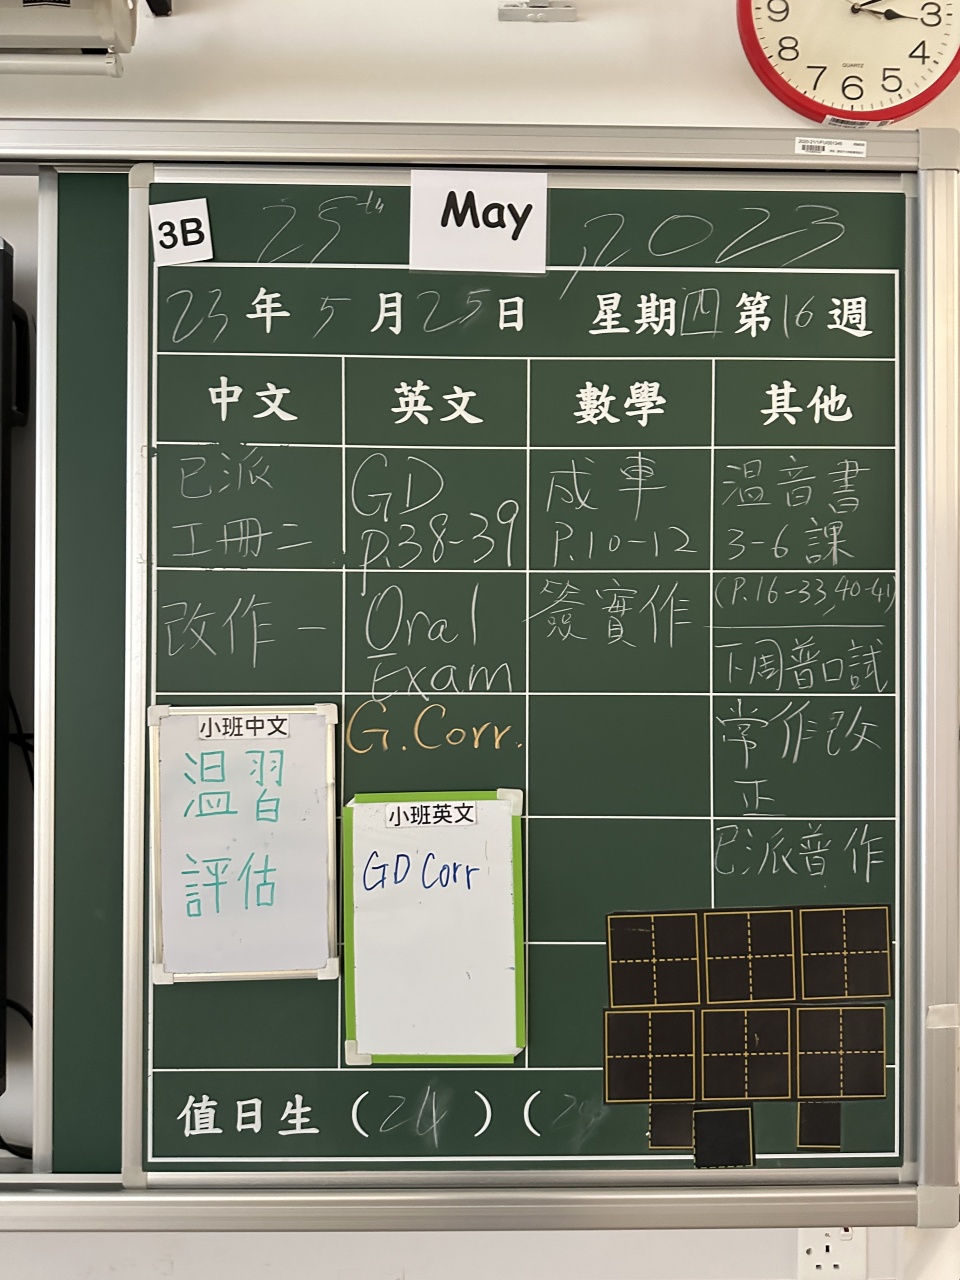 9
3
8
4
7
6
5
QUARTZ
3B
25th May, 2023
23年5月25日 星期四第16週
中文 英文 數學 其他
已派
工冊二
GD
P.38-39
成車
P.10-12
温音書
3-6課
(P.16-33,40-41)
改作一
Oral
Exam
簽實作
下周普口試
小班中文
温習
評估
G.Corr.
常作改
正
小班英文
GD Corr
已派普作
值日生(24)(